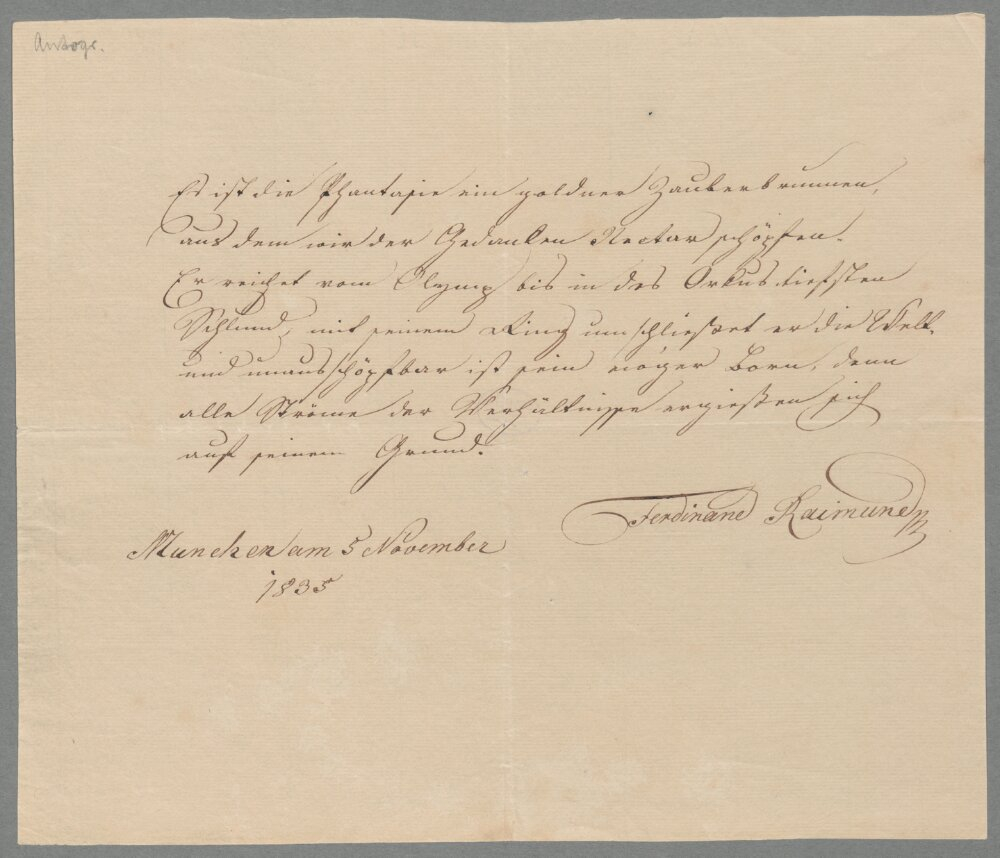 Autogr.
Es ist die Phantasie ein goldner Zauberbrunnen,
aus dem wir der Gedanken Nectar schöpfen.
Er reichet vom Olymp bis in des Orkus tiefsten
Schlund, mit seinem Ring umschließet er die Welt.
und unausschöpfbar ist sein ewger Born, denn
alle Ströme der Verhältnisse ergießen sich
auf seinem Grund.
Ferdinand Raimund
München am 5 November
1835